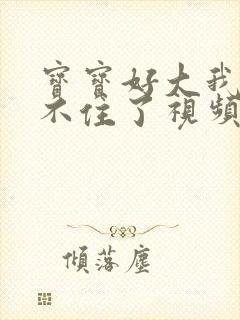 寶寶好大我
不住了視頻
傾落塵